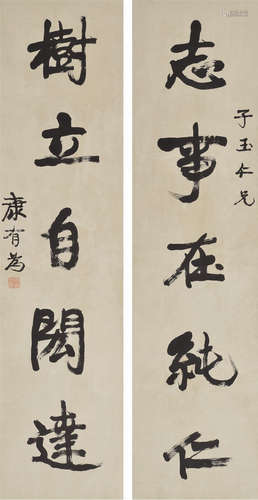 志事在純仁
子玉仁兄
樹立自閎達
康有為